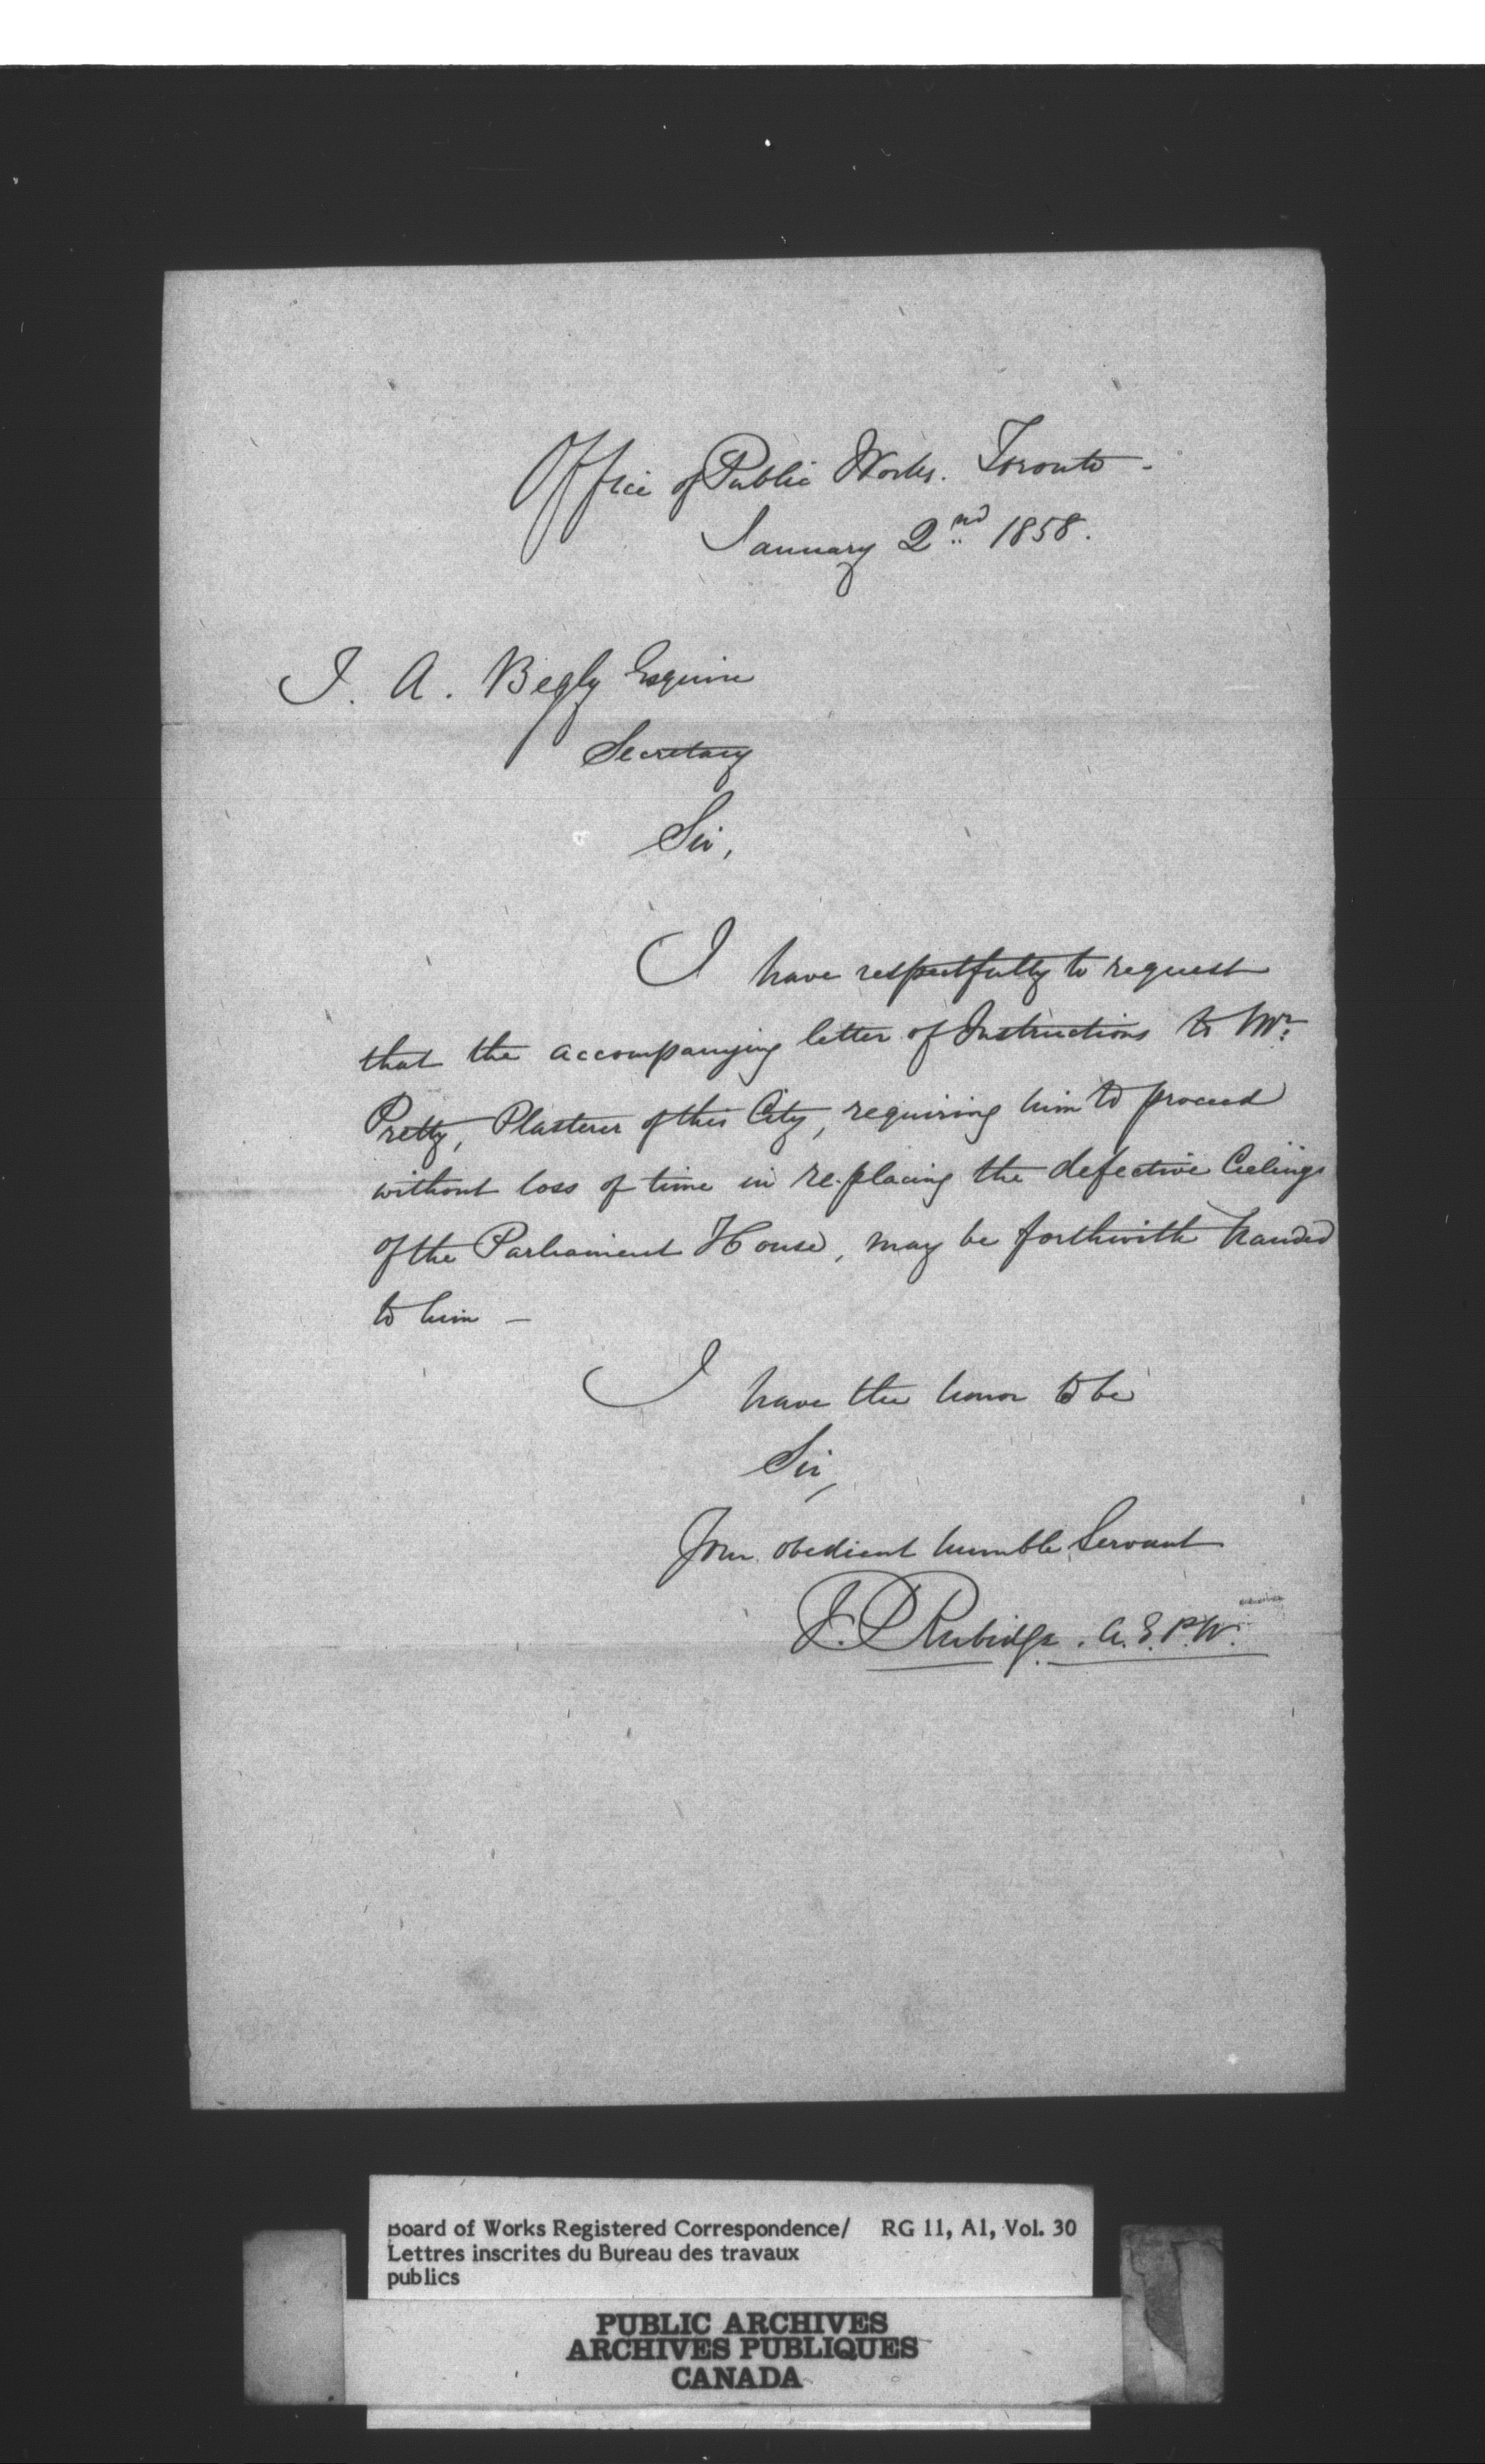 Office of Public Works. Toronto -
January 2nd 1858.
J. A. Begly Esquire
Secretary
Sir,
I have respectfully to request
that the accompanying letter of Instructions to Mr.
Pretty, Plasterer of this City, requiring him to proceed
without loss of time in re-placing the defective Ceilings
of the Parliament House, may be forthwith handed
to him —
I have the honor to be
Sir,
Your obedient humble Servant
F. P. Rubidge. A.E.P.W.
Board of Works Registered Correspondence/ RG 11, A1, Vol. 30
Lettres inscrites du Bureau des travaux
publics
PUBLIC ARCHIVES
ARCHIVES PUBLIQUES
CANADA